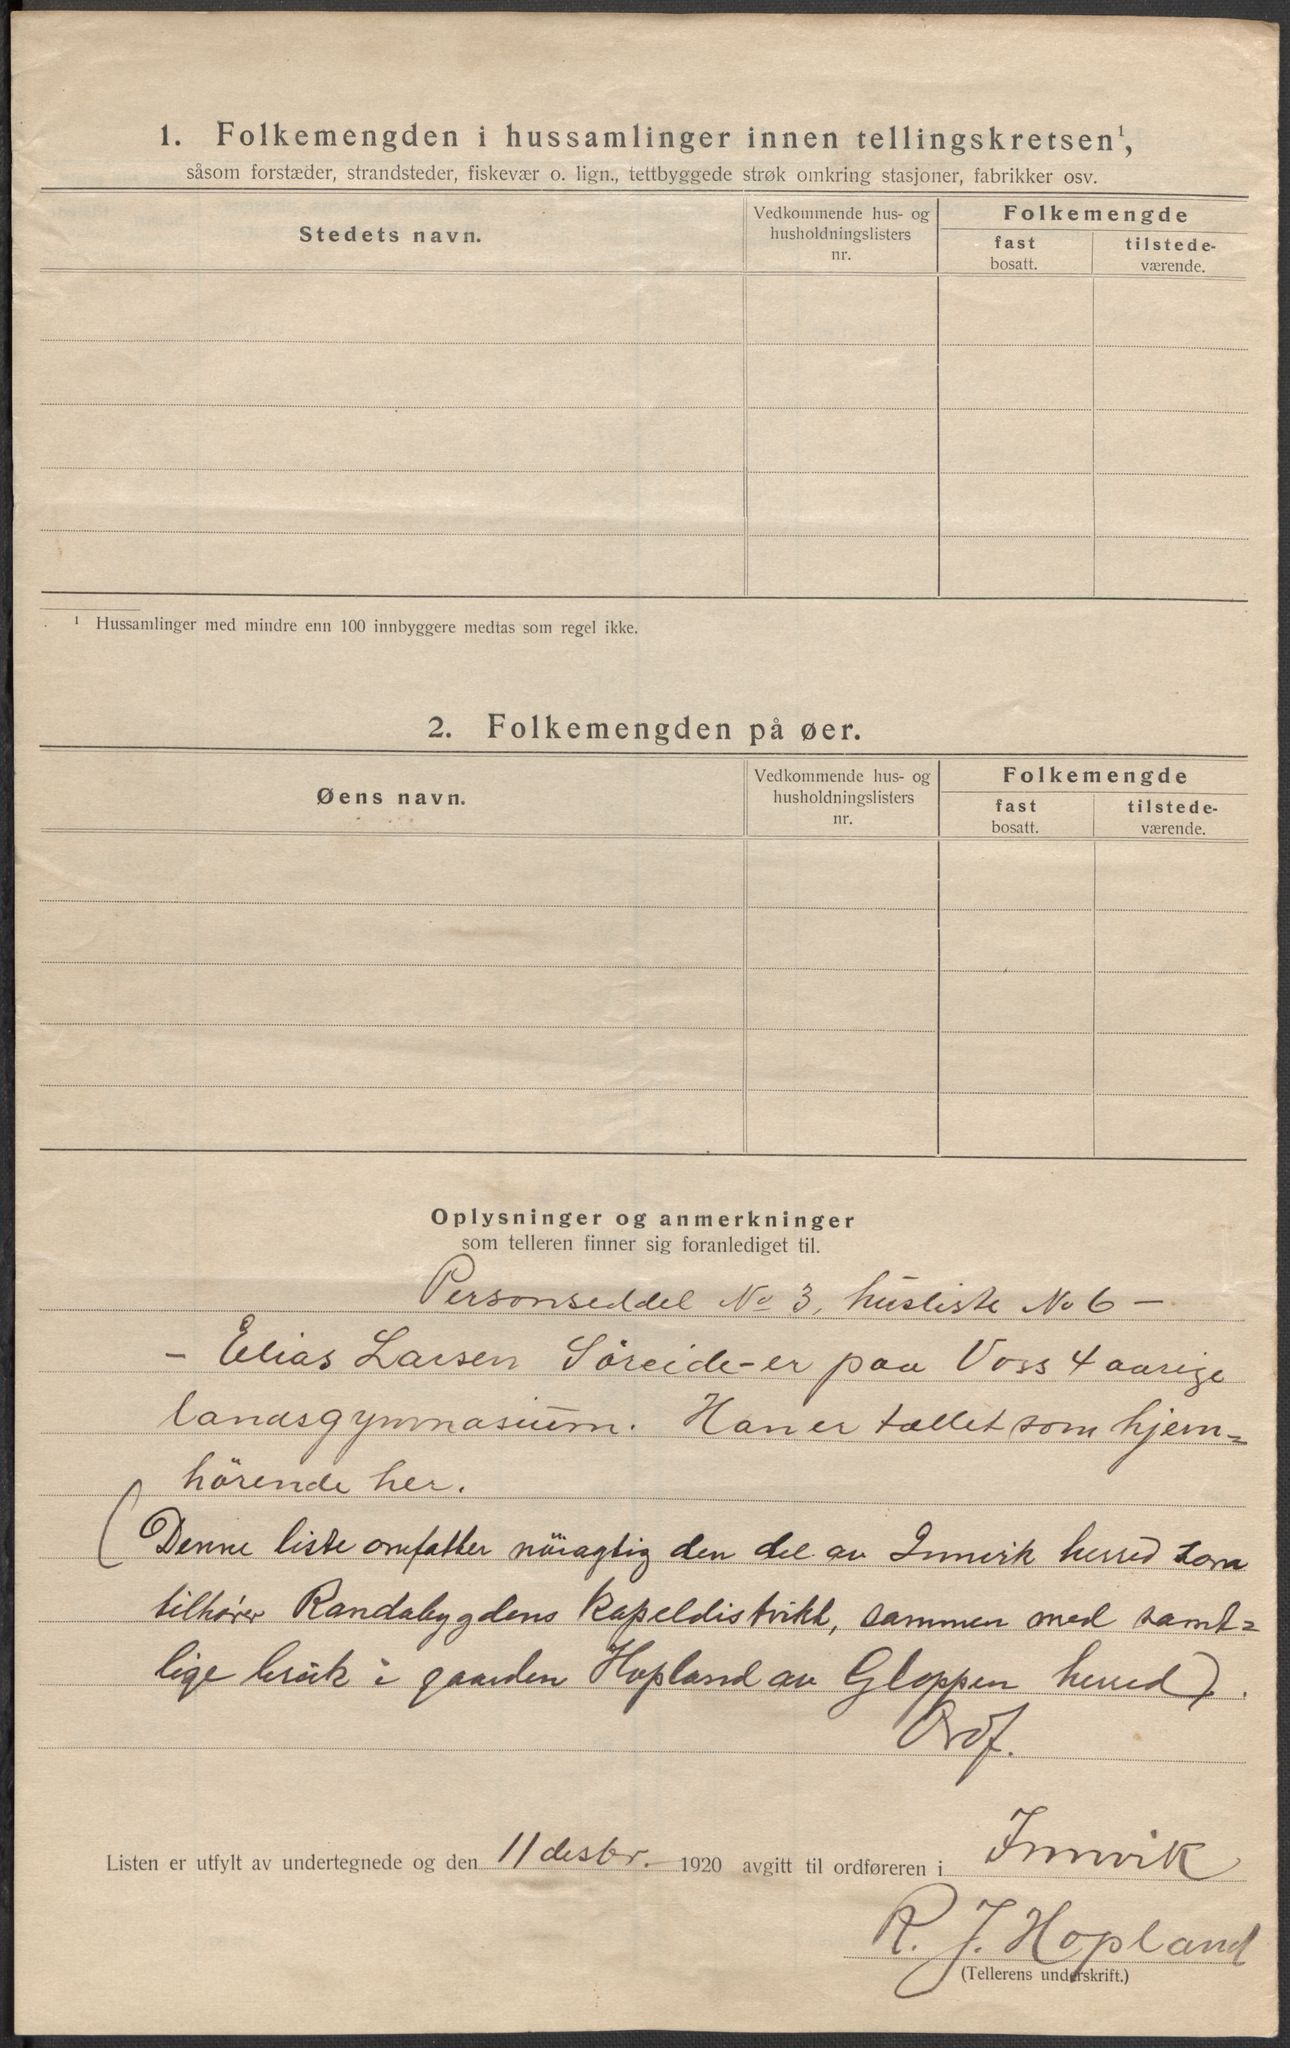 1. Folkemengden i hussamlinger innen tellingskretsen¹,
såsom forstæder, strandsteder, fiskevær o. lign., tettbyggede strøk omkring stasjoner, fabrikker osv.
Stedets navn.
Vedkommende hus- og husholdningslisters nr.
Folkemengde
fast bosatt.
tilstede-værende.
¹ Hussamlinger med mindre enn 100 innbyggere medtas som regel ikke.
2. Folkemengden på øer.
Øens navn.
Vedkommende hus- og husholdningslisters nr.
Folkemengde
fast bosatt.
tilstede-værende.
Oplysninger og anmerkninger
som telleren finner sig foranlediget til.
Personseddel No 3, husliste No 6 –
– Elias Larsen Söreide – er paa Voss 4 aarige
landsgymnasium. Han er tællet som hjem=
hörende her.
(Denne liste omfatter nöiagtig den del av Innvik herred som
tilhører Randabygdens kapeldistrikt, sammen med samt=
lige bruk i gaarden Hopland av Gloppen herred).
Ordf.
Listen er utfylt av undertegnede og den 11 desbr. 1920 avgitt til ordføreren i Innvik
R. J. Hopland
(Tellerens underskrift.)